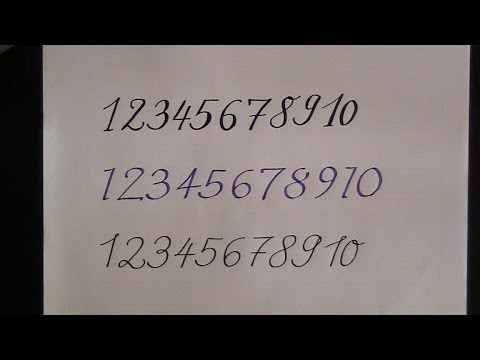 12345678910
12345678910
12345678910